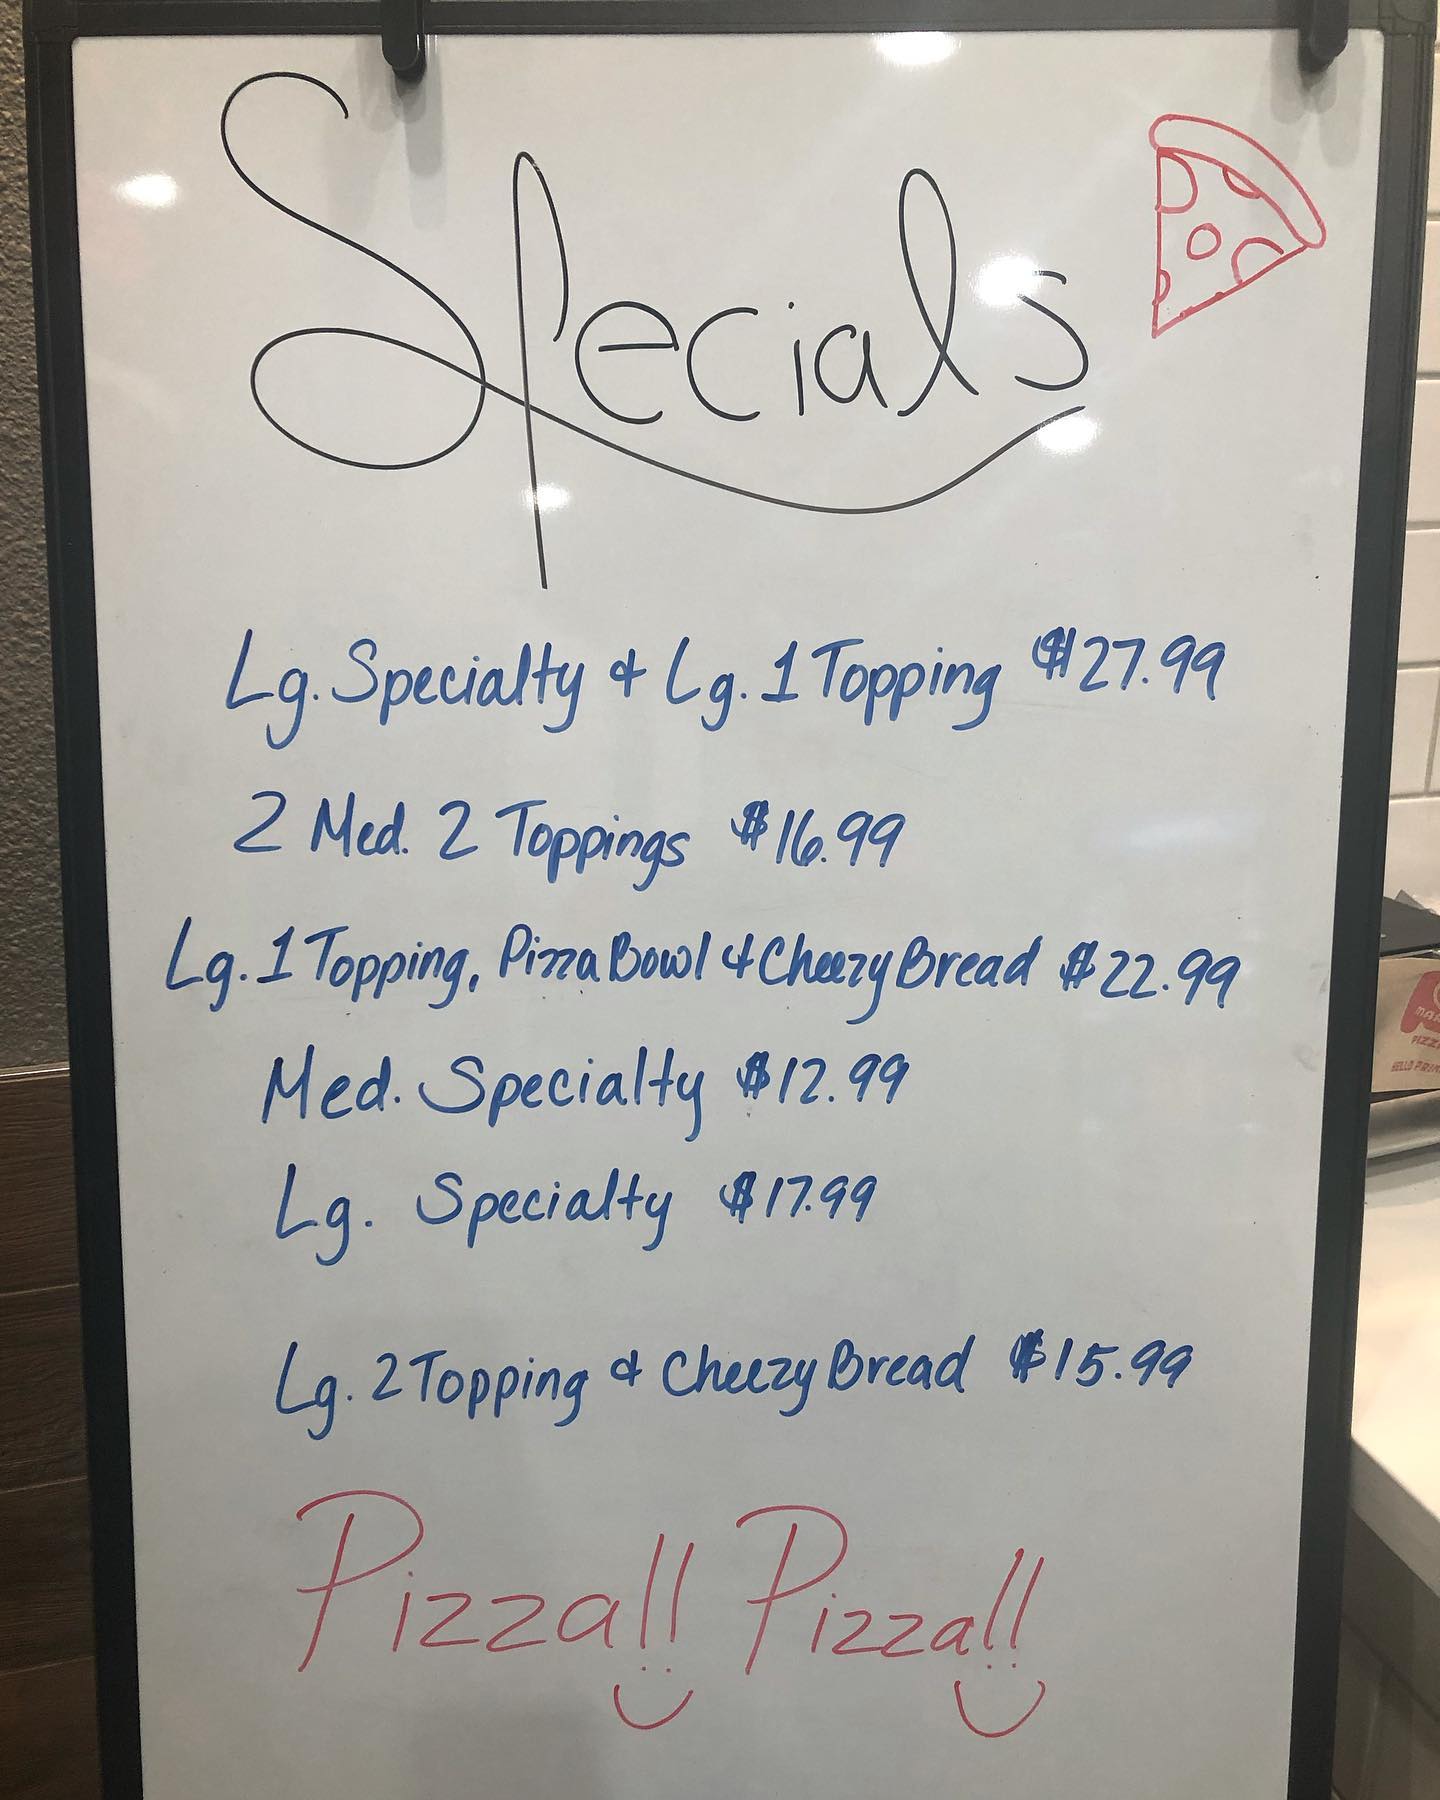 Specials
Lg. Specialty & Lg. 1 Topping $27.99
2 Med. 2 Toppings $16.99
Lg. 1 Topping, Pizza Bowl & Cheezy Bread $22.99
Med. Specialty $12.99
Lg. Specialty $17.99
Lg. 2 Topping & Cheezy Bread $15.99
Pizza!! Pizza!!